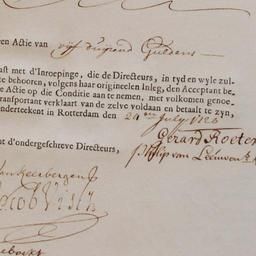 een Actie van vijf duijzend Guldens
aft met d'Inroepinge, die de Directeurs, in tyd en wyle zul-
te behooren, volgens haar origineelen Inleg, den Acceptant be-
e Actie op die Conditie aan te nemen, met volkomen genoe-
transportant verklaart van de zelve voldaan en betaalt te zyn,
onderteekent in Rotterdam den 24 July 1720
Gerard Roeters
Philip van Leeuwen
t d'ondergeschreve Directeurs,
Jacob Visch